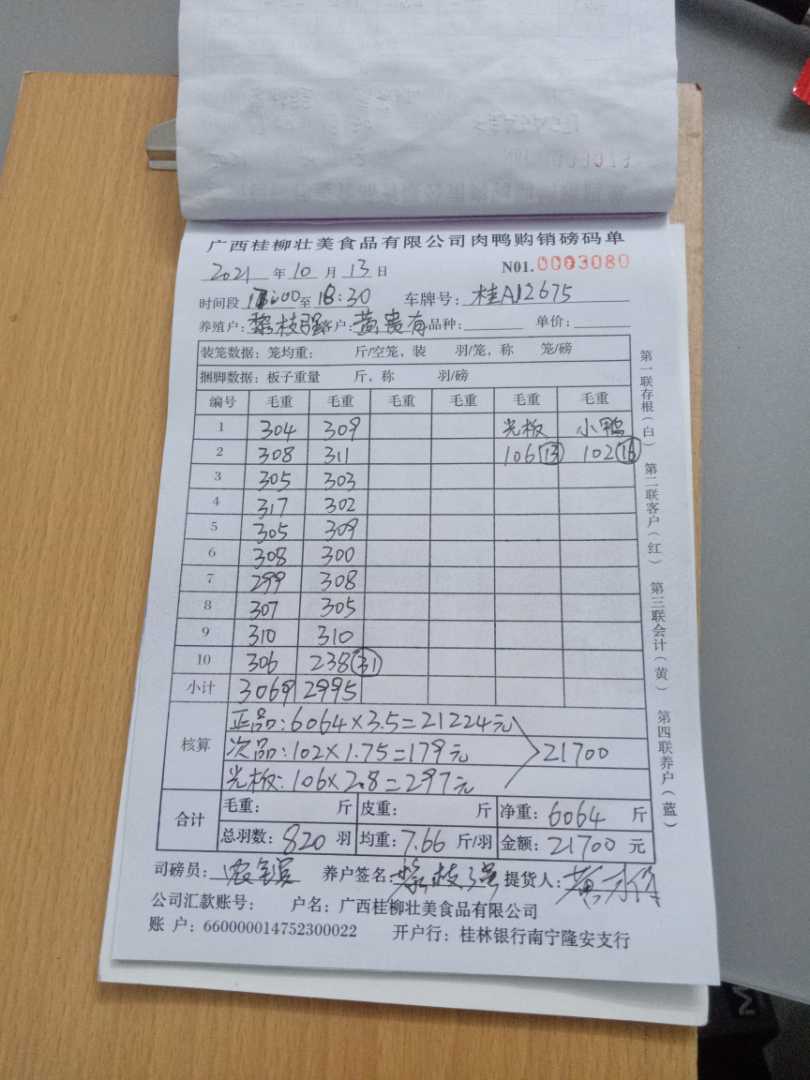 广西桂柳壮美食品有限公司肉鸭购销磅码单
2021 年 10 月 13 日 N01.0003080
时间段 17:00 至 18:30 车牌号: 桂A12675
养殖户: 黎枝强 客户: 黄贵有 品种: 单价:
装笼数据: 笼均重: 斤/空笼, 装 羽/笼, 称 笼/磅
捆脚数据: 板子重量 斤, 称 羽/磅
编号 毛重 毛重 毛重 毛重 毛重 毛重
1 304 309 光板 小鸭
2 308 311 106 13 102
3 305 303
4 317 302
5 305 309
6 308 300
7 299 308
8 307 305
9 310 310
10 306 238 31
小计 3069 2995
核算
正品: 6064×3.5=21224元
次品: 102×1.75=179元 21700
光板: 106×2.8=297元
合计
毛重: 斤 皮重: 斤 净重: 6064 斤
总羽数: 820 羽 均重: 7.66 斤/羽 金额: 21700 元
司磅员: 养户签名: 黎枝强 提货人: 黄
公司汇款账号: 户名: 广西桂柳壮美食品有限公司
账 户: 660000014752300022 开户行: 桂林银行南宁隆安支行
第一联存根(白) 第二联客户(红) 第三联会计(黄) 第四联养户(蓝)